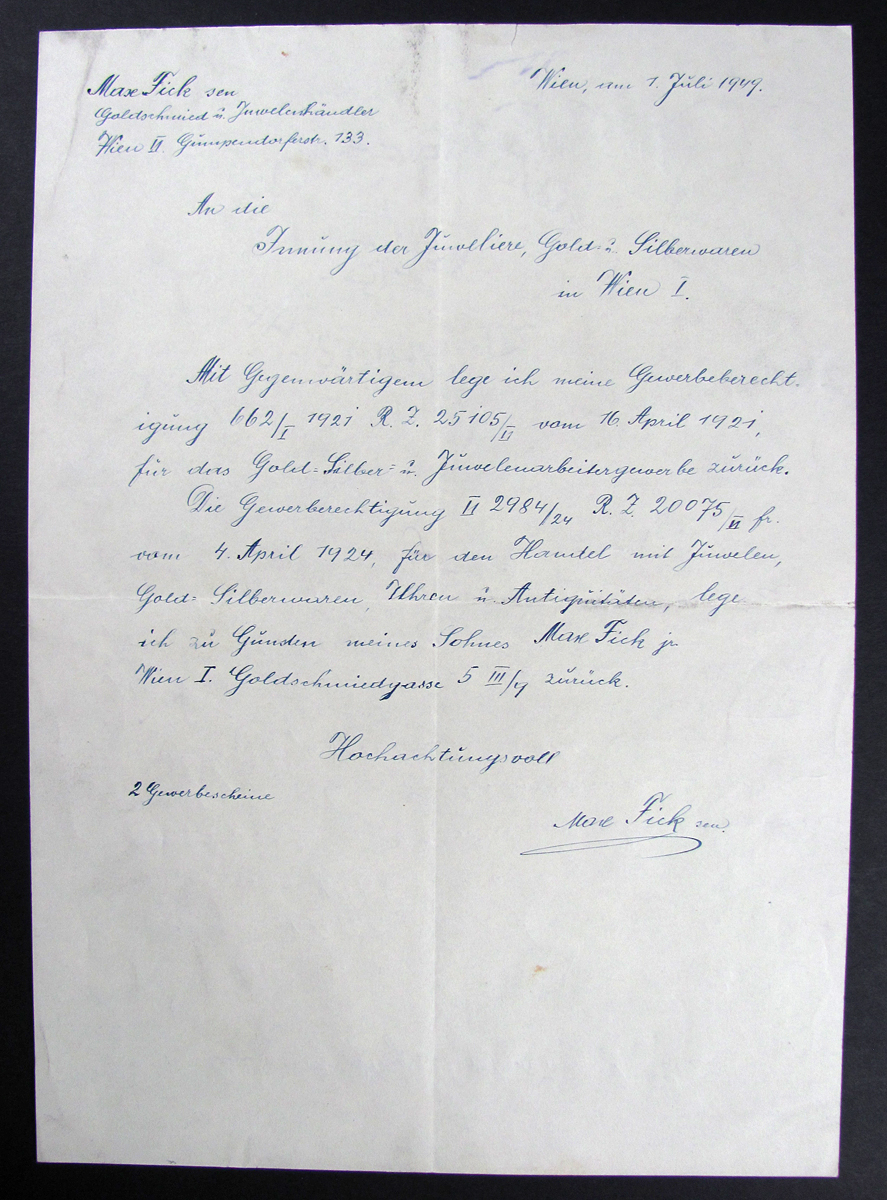 Max Fick sen
Wien, am 1. Juli 1949.
Goldschmied u. Juwelenhändler
Wien II. Gumpendorferstr. 133.
An die
Innung der Juweliere, Gold- u. Silberwaren
in Wien I.
Mit Gegenwärtigem lege ich meine Gewerbeberecht-
igung 662/I 1921 R. Z. 25105/II vom 16 April 1921,
für das Gold= Silber= u. Juwelenarbeitergewerbe zurück.
Die Gewerberechtigung II 2984/24 R. Z. 20075/II fr.
vom 4. April 1924, für den Handel mit Juwelen,
Gold= Silberwaren, Uhren u. Antiquitäten, lege
ich zu Gunsten meines Sohnes Max Fick jr
Wien I. Goldschmiedgasse 5 III/19 zurück.
Hochachtungsvoll
2 Gewerbescheine
Max Fick sen.